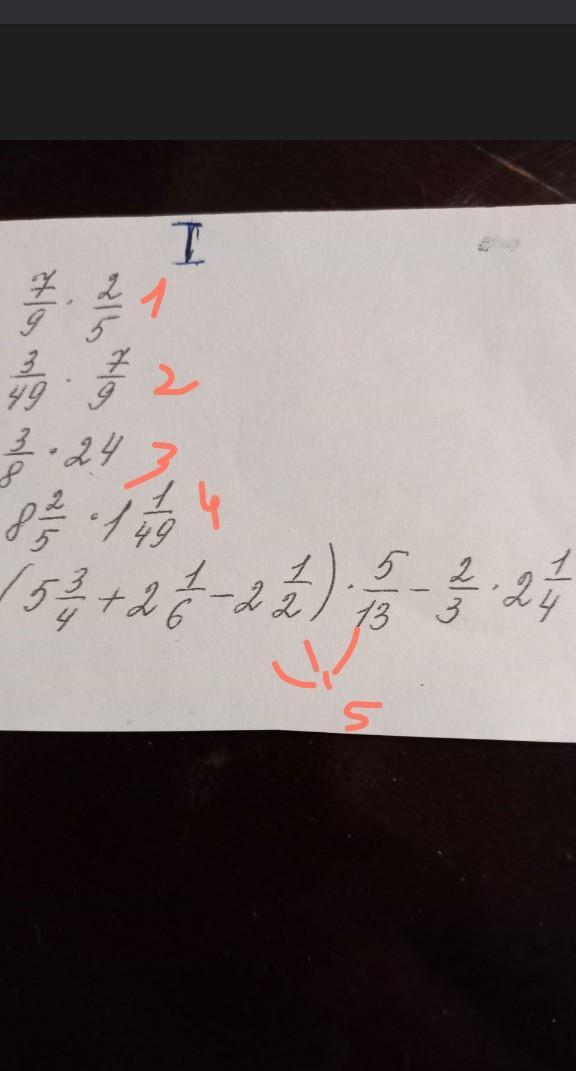 I
7/9 · 2/5 1
3/49 · 7/9 2
3/8 · 24 3
8 2/5 · 1 1/49 4
(5 3/4 + 2 1/6 - 2 1/2) · 5/13 - 2/3 · 2 1/4
5